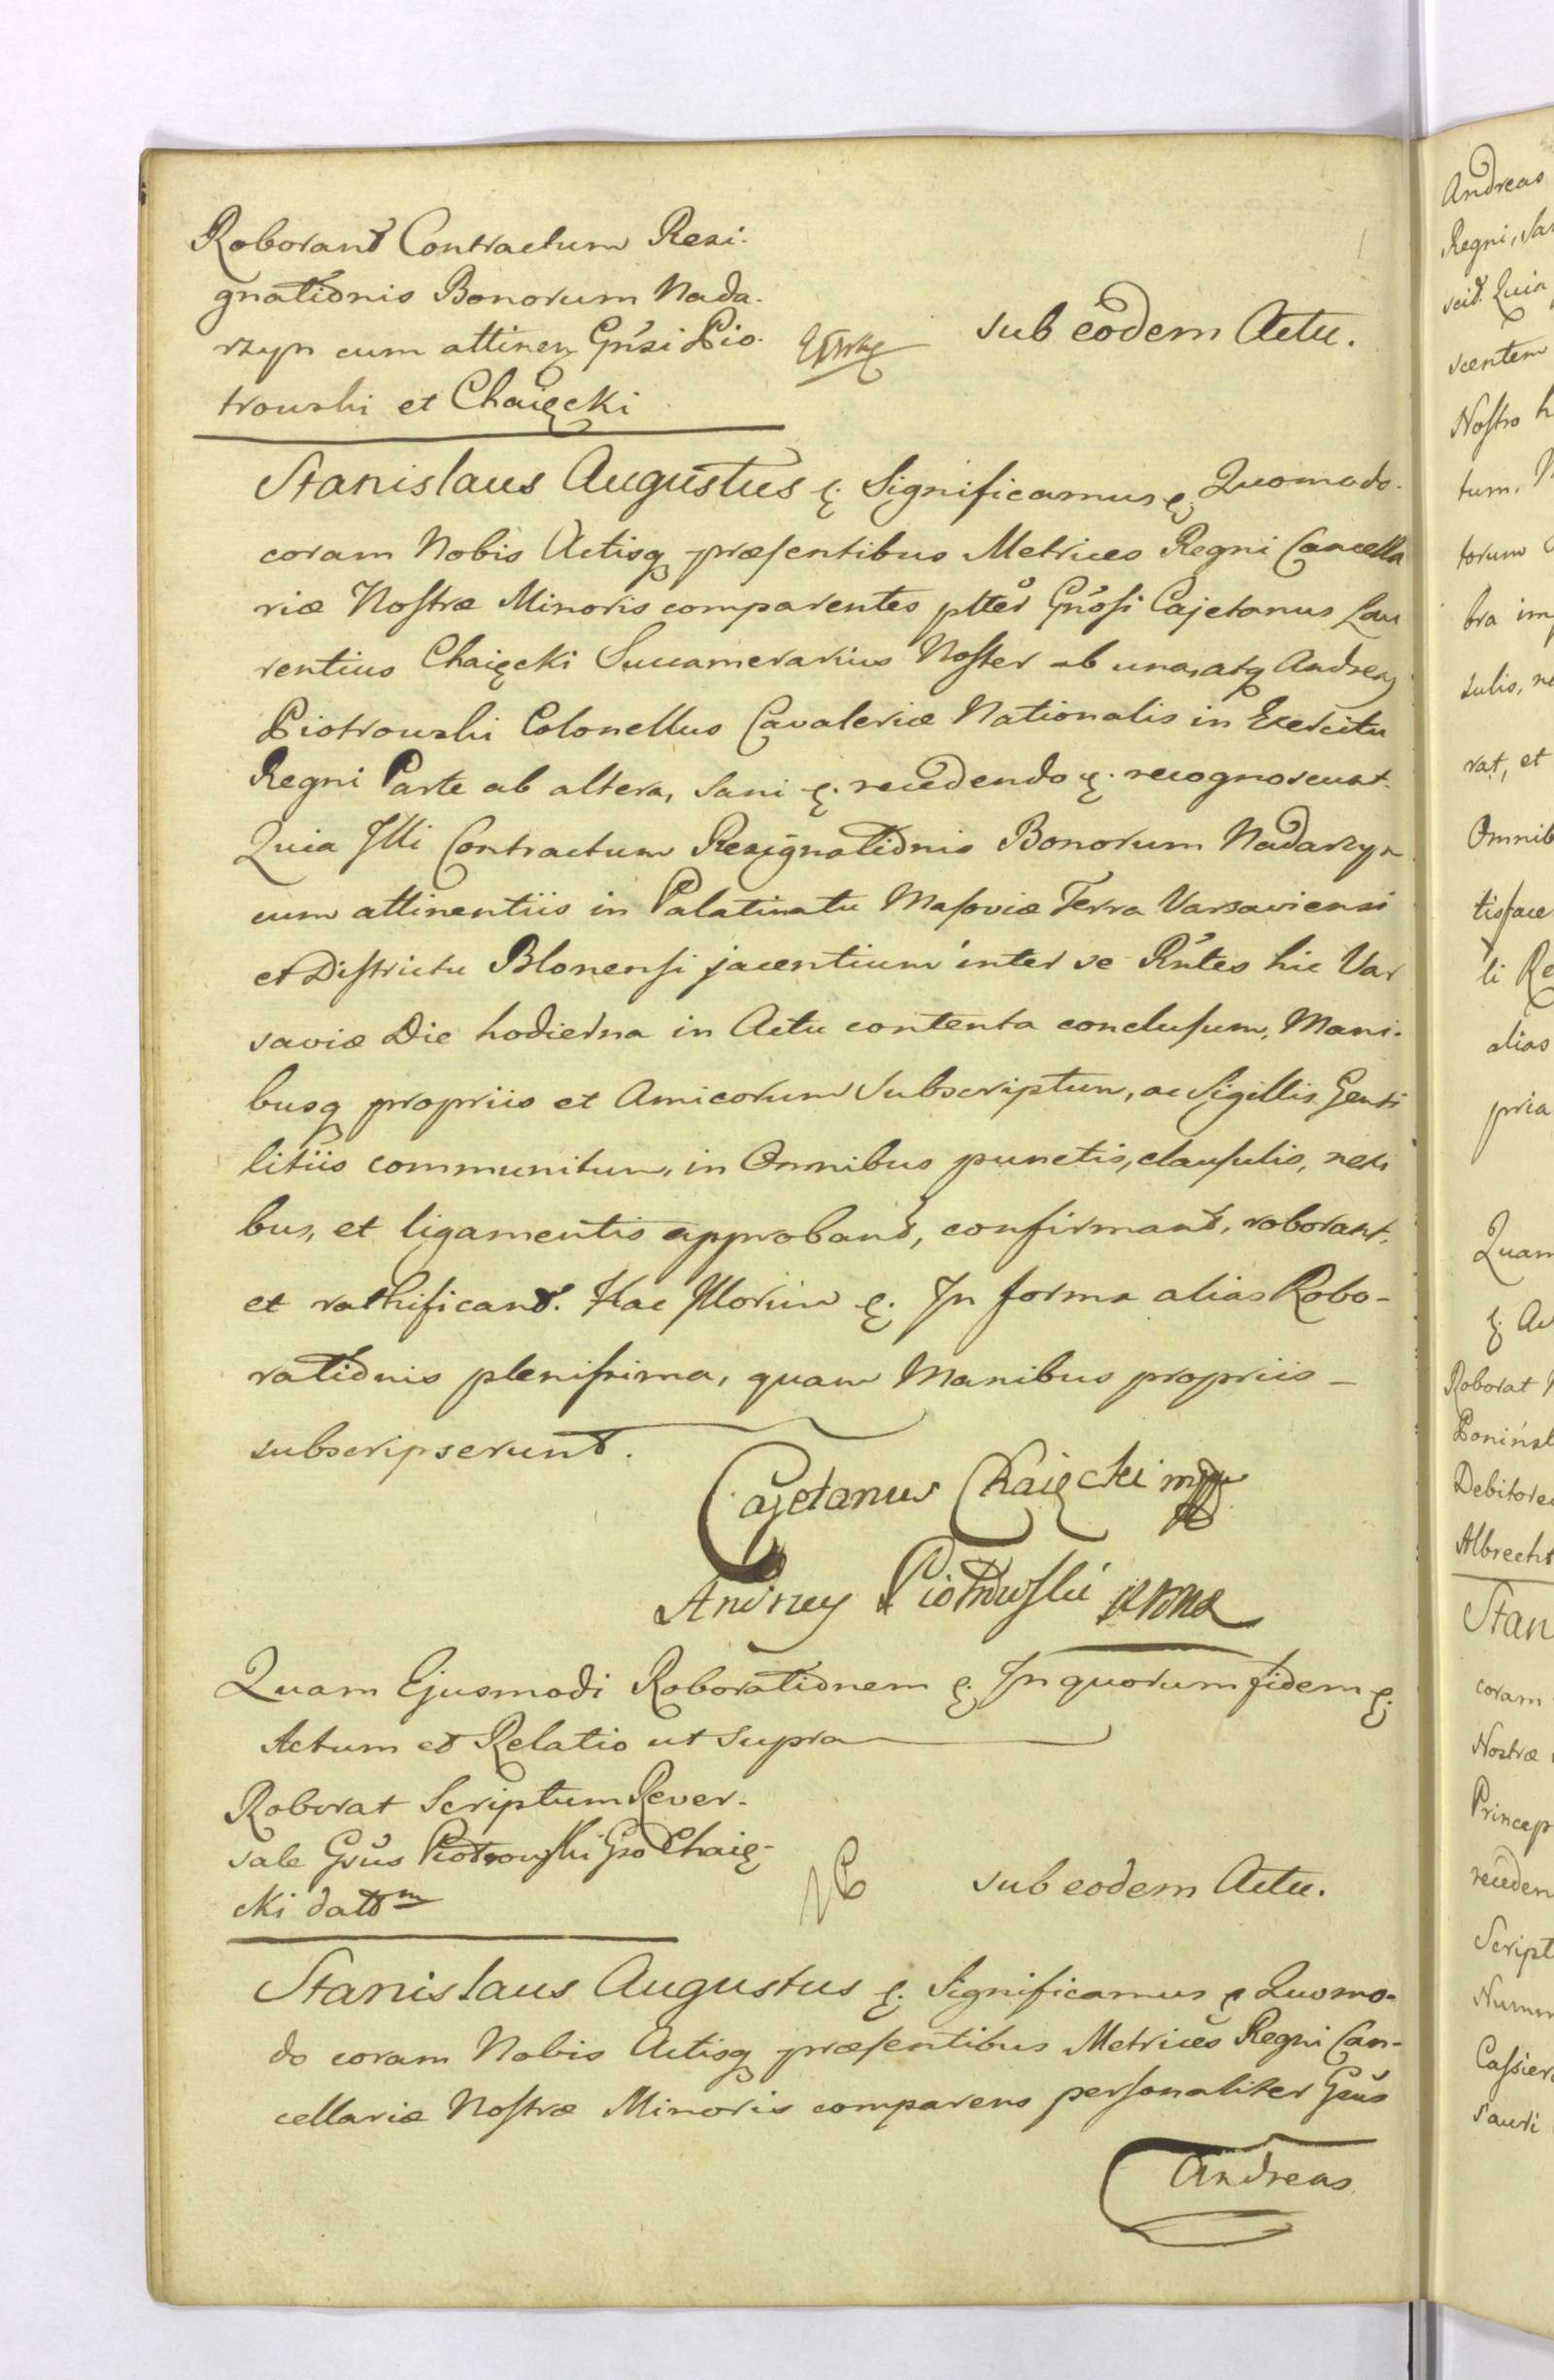 Roborant Contractum Resi-
gnationis Bonorum Nada-
rzyn cum attinen Gnsi Pio-
trowski et Chaięcki
sub eodem Actu.
Stanislaus Augustus &. Significamus &. Quomodo
coram Nobis Actisq præsentibus Metrices Regni Cancella
riæ Nostræ Minoris comparentes plter Gnosi Cajetanus Lau
rentius Chaięcki Succamerarius Noster ab una, atq Andreas
Piotrowski Colonellus Cavaleriæ Nationalis in Exercitu
Regni Parte ab altera, Sani &. recedendo &. recognoscunt.
Quia Illi Contractum Resignationis Bonorum Nadarzyn
cum attinentiis in Palatinatu Masoviæ Terra Varsaviensi
et Districtu Blonensi jacentium inter se Rntes hic Var
saviæ Die hodierna in Actu contenta conclusum, Mani-
busq propriis et Amicorum Subscriptum, ac Sigillis Genti
litiis communitum, in Omnibus punctis, clausulis, nexi
bus, et ligamentis approbant, confirmant, roborant,
et rathificant. Hac Illorum &. In forma alias Robo-
rationis plenissima, quam Manibus propriis
subscripserunt.
Cajetanus Chaięcki mpp
Andrzey Piotrowski
Quam Ejusmodi Roborationem &. In quorum fidem &.
Actum et Relatio ut supra
Roborat Scriptum Rever-
sale Gsus Piotrowski Gso Chaię-
cki datm
sub eodem Actu.
Stanislaus Augustus &. Significamus & Quomo-
do coram Nobis Actisq præsentibus Metrices Regni Can-
cellariæ Nostræ Minoris comparens personaliter Gsus
Andreas
Andreas
Regni, Sa
Quia
scentem
Nostro h
tum.
torum
bra im
sulis, ne
rat, et
Omnib
tisface
li Re
alias
pria
Quam
&. Ac
Roborat
Ponińsk
Debitore
Albrecht
Stan
coram
Nostræ
Princep
receden
Script
Numm
Cassier
sauri